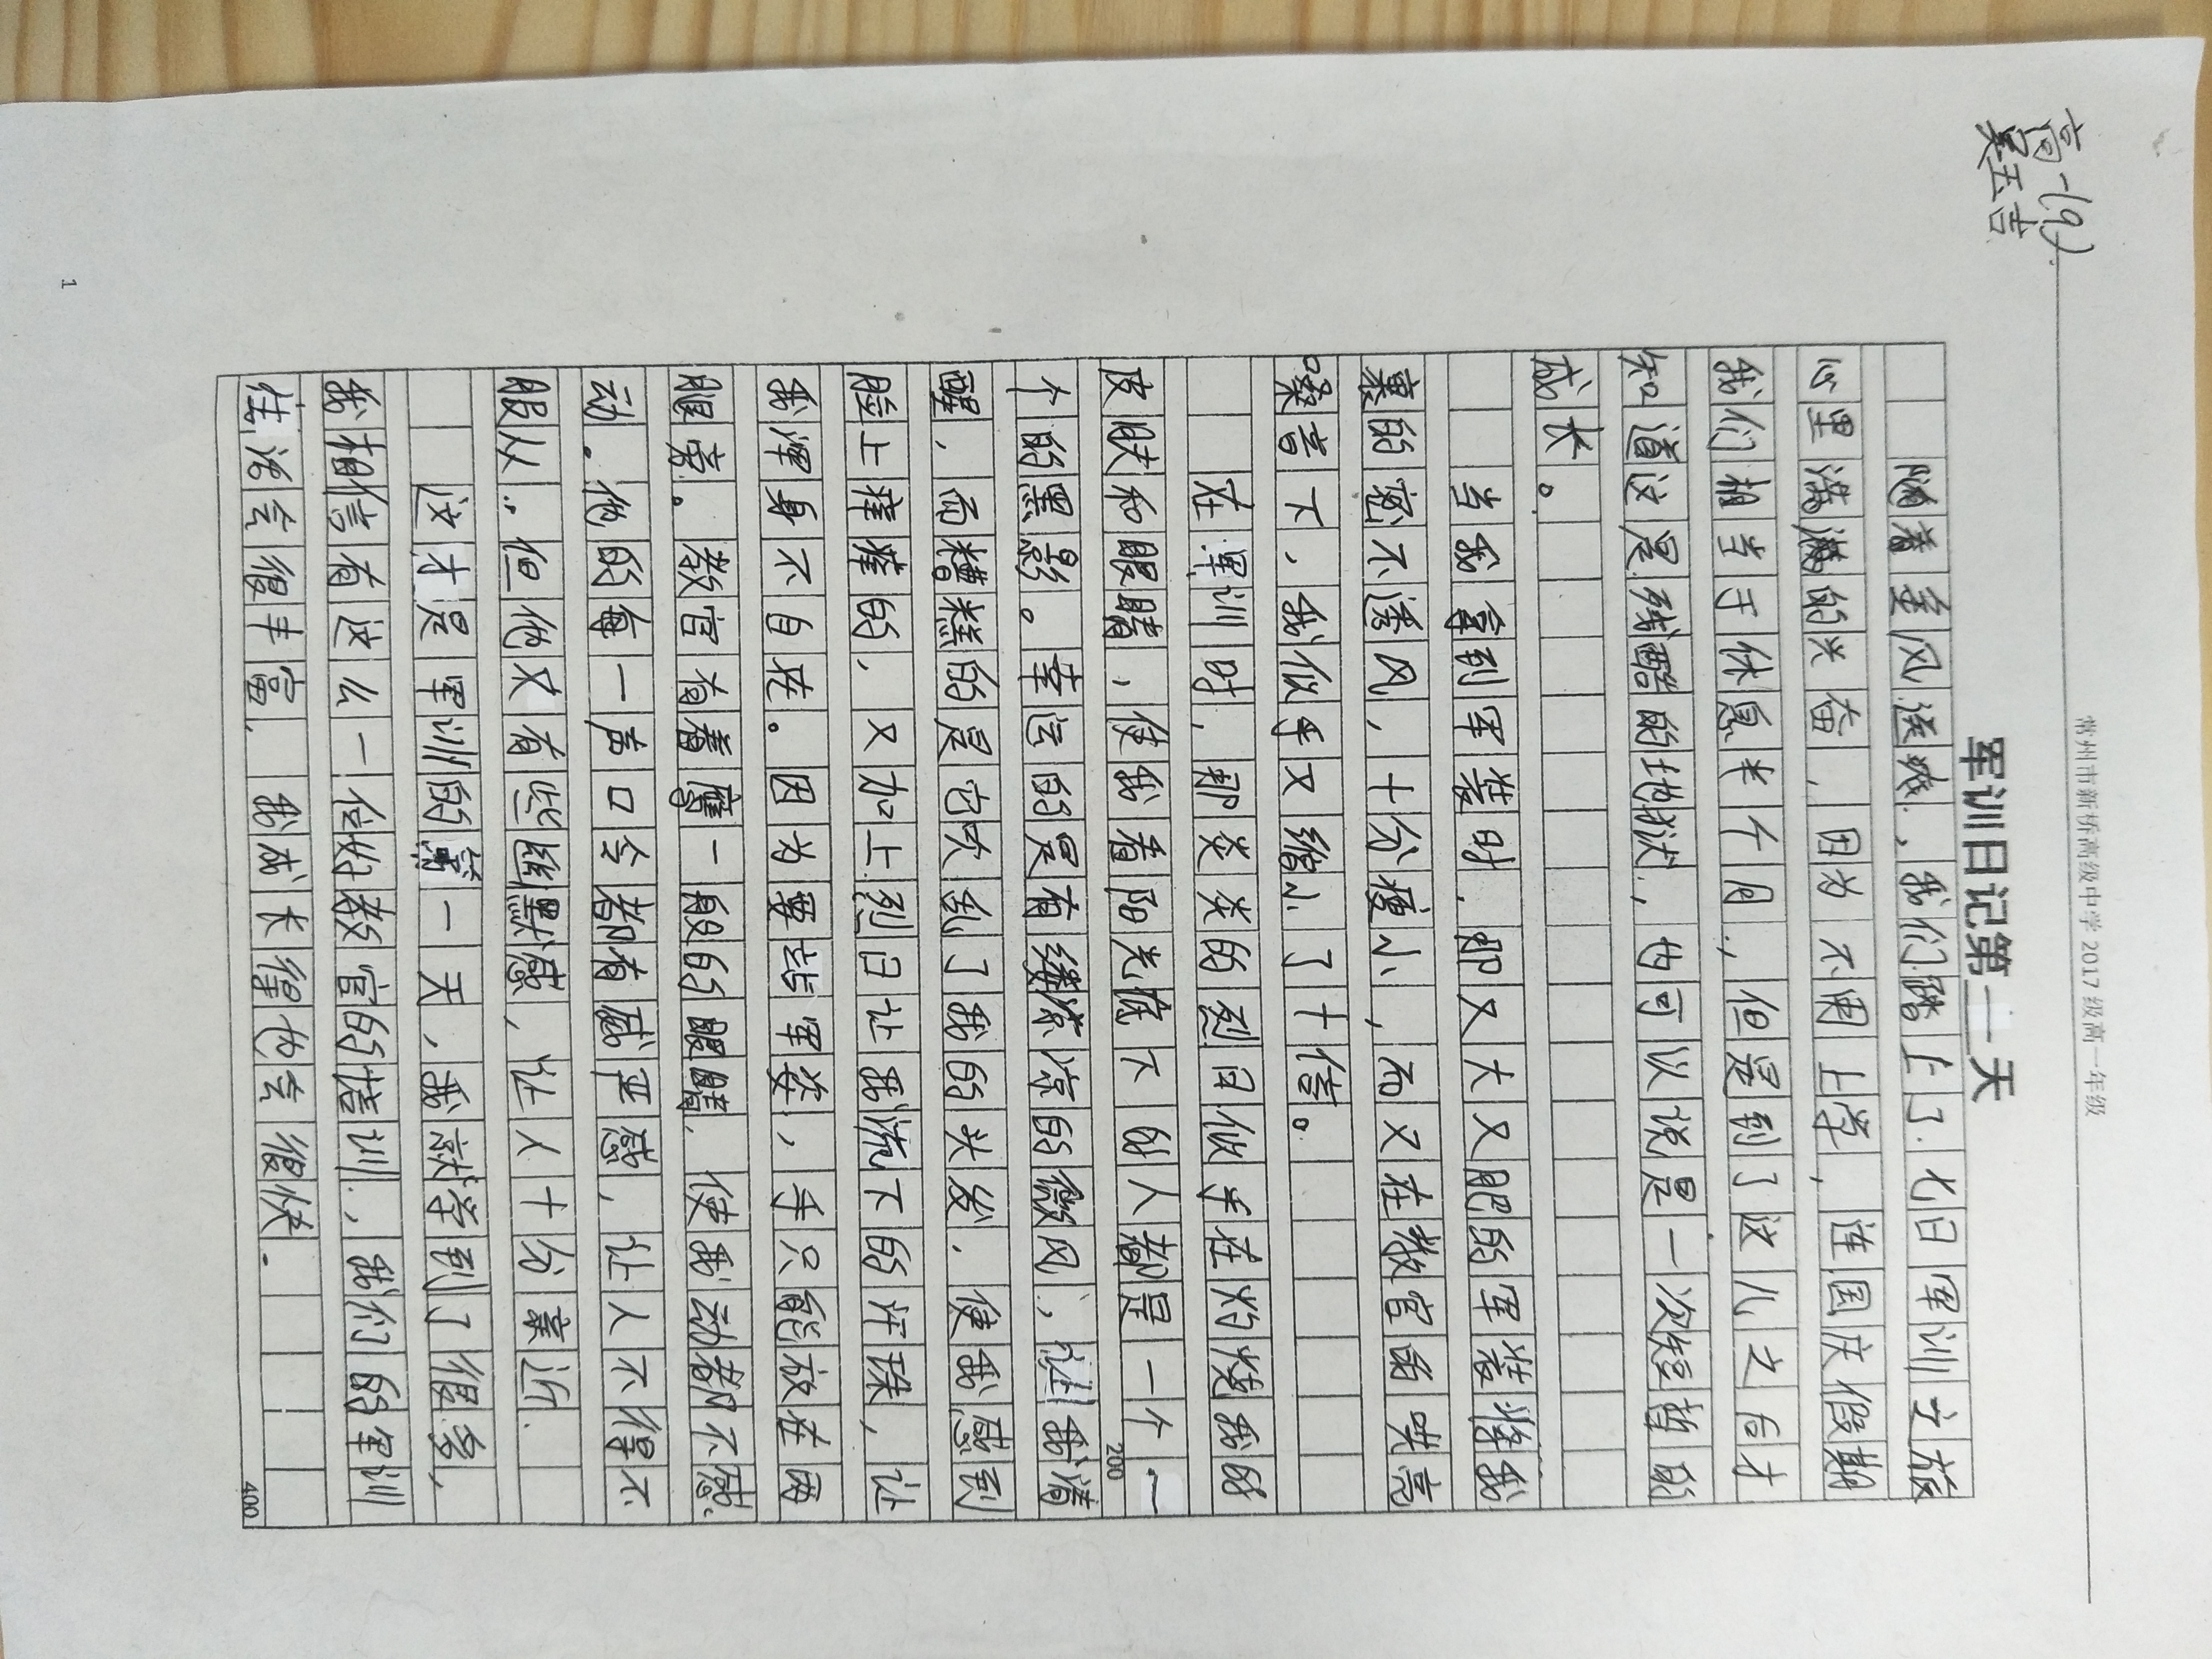 高一(9)
吴玉吉
常州市新桥高级中学2017级高一年级
军训日记第一天
随着金风送爽，我们踏上了七日军训之旅
心里满满的兴奋，因为不用上学，连国庆假期
我们相当于休息半个月，但是到了这儿之后才
知道这是残酷的地狱，也可以说是一次短暂的
成长。
当我拿到军装时，那又大又肥的军装将我
裹的密不透风，十分瘦小，而又在教官的哄亮
嗓音下，我似乎又缩小了十倍。
在军训时，那炎炎的烈日似乎在灼烧我的
皮肤和眼睛，使我看阳光底下的人都是一个一
200
个的黑影。幸运的是有缕凉凉的微风，让我清
醒，而糟糕的是它吹乱了我的头发，使我感到
脸上痒痒的，又加上烈日让我流下的汗珠，让
我浑身不自在。因为要站军姿，手只能放在两
腿旁。教官有着鹰一般的眼睛，使我动都不敢
动。他的每一声口令都有威严感，让人不得不
服从。但他又有些幽默感，让人十分亲近。
这才是军训的第一天，我就学到了很多，
我相信有这么一位好教官的陪训，我们的军训
生活会很丰富，我成长得也会很快。
400
1